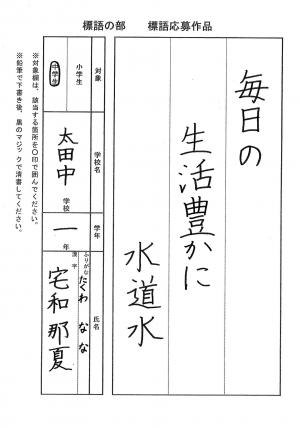 標語の部　標語応募作品
毎日の
生活豊かに
水道水
対象
小学生
中学生
学校名
太田中 学校
学年
一 年
氏名
ふりがな たくわ なな
漢字 宅和那夏
※対象欄は、該当する箇所を〇印で囲んでください。
※鉛筆で下書き後、黒のマジックで清書してください。